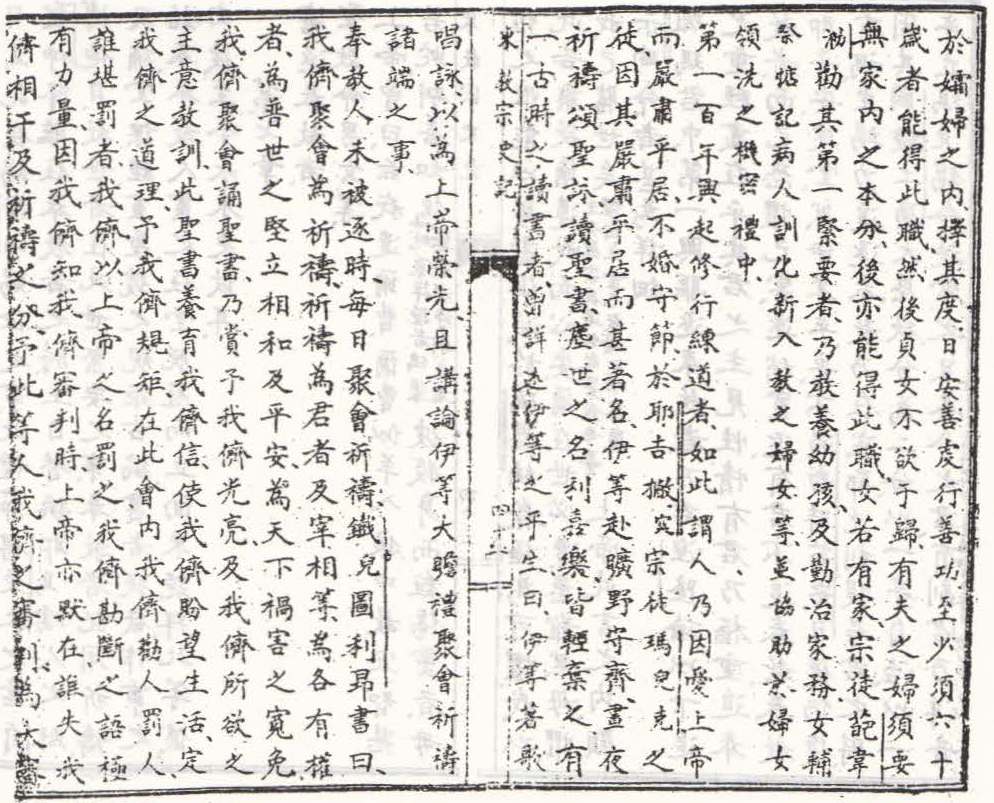 於孀婦之內擇其度日安善虔行善功至少須六十
歲者能得此職然後貞女不欲于歸有夫之婦須要
無家內之本分後亦能得此職女若有家宗徒葩韋
泐勸其第一緊要者乃教養幼孩及勤治家務女輔
祭惦記病人訓化新入教之婦女等並協助於婦女
領洗之機密禮中
第一百年興起修行練道者如此謂人乃因愛上帝
而嚴肅平居不婚守節於耶吉撇突宗徒瑪兒克之
徒因其嚴肅平居而甚著名伊等赴曠野守齋晝夜
祈禱頌聖詠讀聖書塵世之名利喜樂皆輕棄之有
一古時之讀書者曾詳述伊等之平生曰伊等著歌
東教宗史記
四十二
唱詠以為上帝榮光且講論伊等大瞻禮聚會祈禱
諸端之事
奉教人未被逐時每日聚會祈禱鐵兒圖利昂書曰
我儕聚會為祈禱祈禱為君者及宰相等為各有權
者為普世之堅立相和及平安為天下禍害之寬免
我儕聚會誦聖書乃賞予我儕光亮及我儕所欲之
主意教訓此聖書養育我儕信使我儕盼望生活定
我儕之道理予我儕規矩在此會內我儕勸人罰人
誰堪罰者我儕以上帝之名罰之我儕勘斷之語極
有力量因我儕知我儕審判時上帝亦默在誰失我
儕相干及祈禱之分予此等人我儕之審判為大